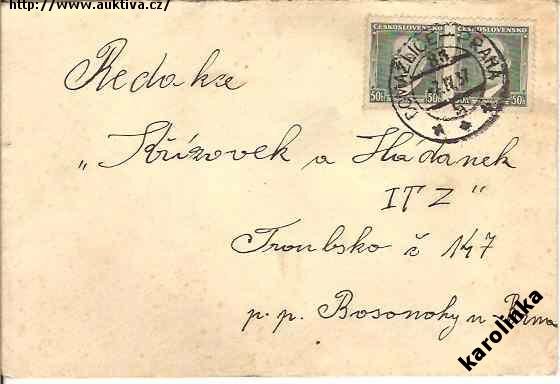 http://www.auktiva.cz/
ČESKOSLOVENSKO ČESKOSLOVENSKO
50h 50h 50h
DOMAŽLICE - PRAHA
Redakce
„Křížovek a Hádanek
ITZ"
Troubsko č 147
p. p. Bosonohy u Brna
karolinka